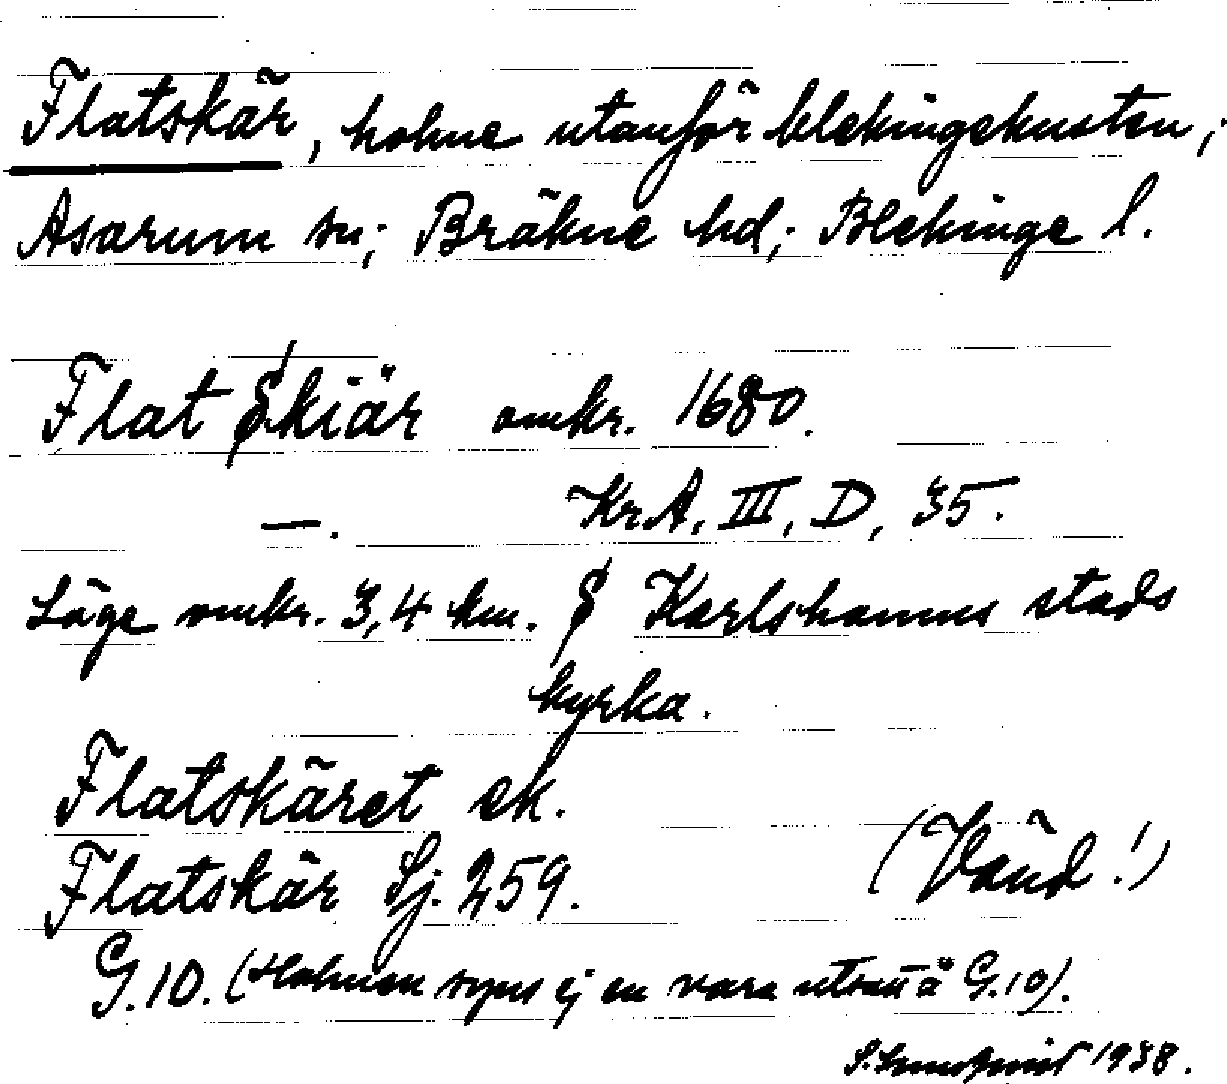 Flatskär, holme utanför blekingekusten;
Asarum sn; Bräkne hd; Blekinge l.
Flat Skiär omkr. 1680.
—. KrA, III, D, 35.
Läge omkr. 3,4 km. S Karlshamns stads
kyrka.
Flatskäret ek.
Flatskär Sj. 259. (Vänd!)
G. 10. (Holmen syns ej en vara utsatt å G. 10).
S. 1938.